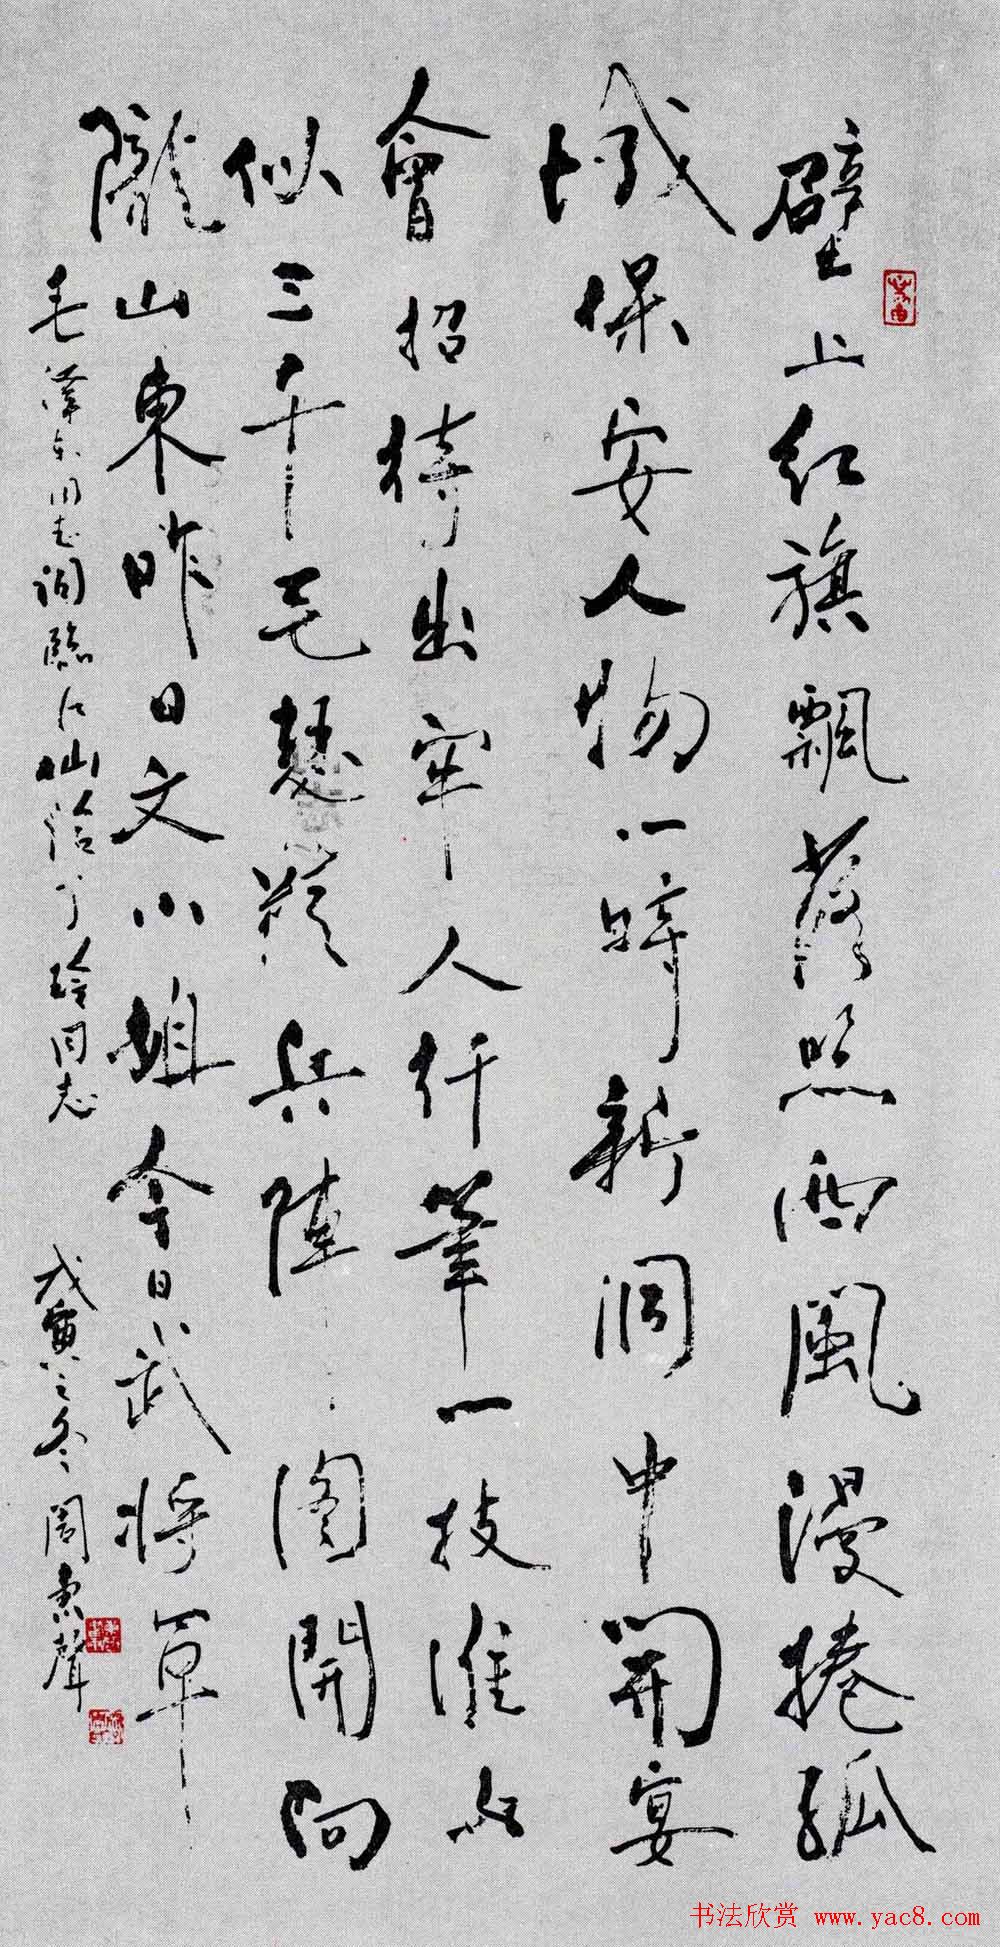 壁上红旗飄落照西風漫捲孤
城保安人物一時新洞中開宴
會招待出牢人纤筆一枝谁与
似三千毛瑟精兵陣图開向
隴山東昨日文小姐今日武将軍
毛澤东同志词臨江仙给丁玲同志 戊寅之冬 周 聲
书法欣赏 www.yac8.com